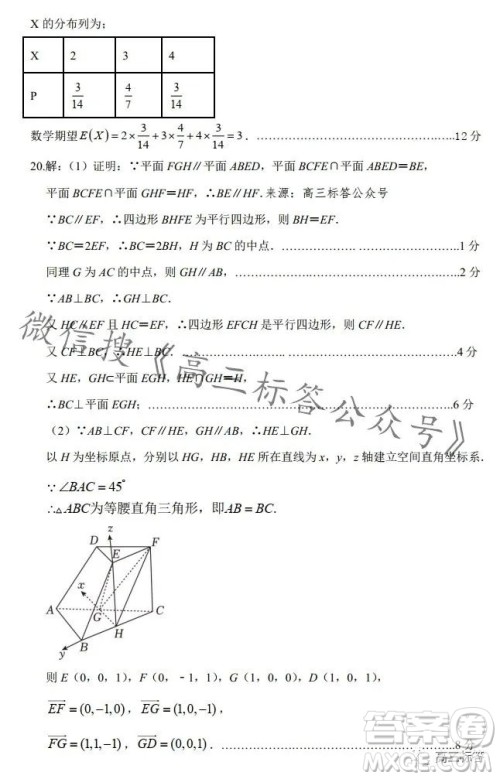 X 的分布列为：
X 2 3 4
P 3/14 4/7 3/14
数学期望E(X)=2×3/14+3×4/7+4×3/14=3．…………………………………………12 分
20.解：（1）证明：∵平面 FGH∥平面 ABED，平面 BCFE∩平面 ABED＝BE，
平面 BCFE∩平面 GHF＝HF，∴BE∥HF.来源：高三标答公众号
∵BC∥EF，∴四边形 BHFE 为平行四边形，则 BH＝EF．
∵BC＝2EF，∴BC＝2BH，H 为 BC 的中点．…………………………………………1 分
同理 G 为 AC 的中点，则 GH∥AB．…………………………………………2 分
∵AB⊥BC，∴GH⊥BC．
又 HC∥EF 且 HC＝EF，∴四边形 EFCH 是平行四边形，则 CF∥HE．
又 CF⊥BC，∴HE⊥BC．…………………………………………4 分
又 HE，GH⊂平面 EGH，HE∩GH＝H，
∴BC⊥平面 EGH；…………………………………………6 分
（2）∵AB⊥CF，CF∥HE，GH∥AB，∴HE⊥GH．
以 H 为坐标原点，分别以 HG，HB，HE 所在直线为 x，y，z 轴建立空间直角坐标系．
∵∠BAC=45°
∴△ABC为等腰直角三角形，即AB＝BC．
z
D
F
E
x
A
G
C
H
B
y
则 E（0，0，1），F（0，﹣1，1），G（1，0，0），D（1，0，1），
EF=(0,-1,0)，EG=(1,0,-1)，
FG=(1,1,-1)，GD=(0,0,1)．…………………………………………8 分
微信搜《高三标答公众号》
高三标答
答案圈
MXQE.COM